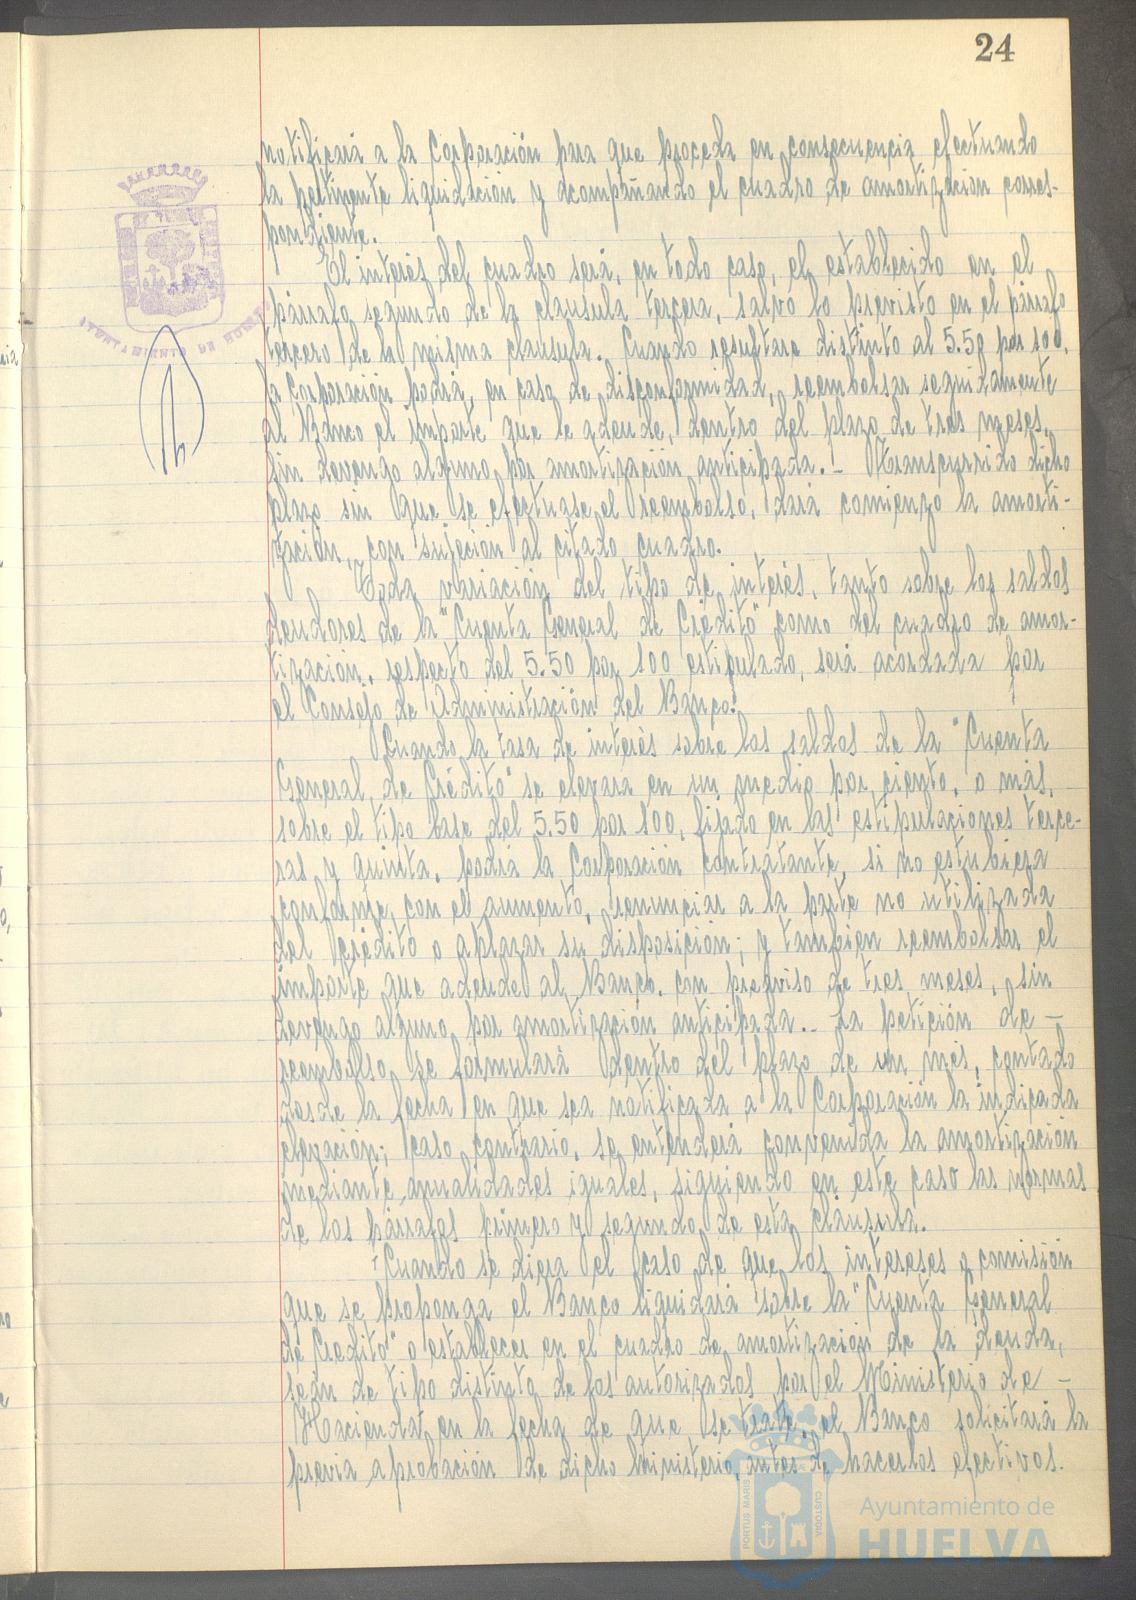 24
notificará a la Corporación para que proceda en consecuencia efectuando
la pertinente liquidación y acompañando el cuadro de amortización corres-
pondiente.
El interés del cuadro será, en todo caso, el establecido en el
párrafo segundo de la clausula tercera, salvo lo previsto en el párrafo
tercero de la misma clausula. Cuando resultare distinto al 5.50 por 100,
la Corporación podrá, en caso de disconformidad, reembolsar seguidamente
al Banco el importe que le adeude, dentro del plazo de tres meses,
sin devengo alguno por amortización anticipada.- Transcurrido dicho
plazo sin que se efectuase el reembolso, dará comienzo la amorti-
zación, con sujeción al citado cuadro.
Toda variación del tipo de interés, tanto sobre los saldos
deudores de la "Cuenta General de Crédito" como del cuadro de amor-
tización, respecto del 5.50 por 100 estipulado, será acordada por
el Consejo de Administración del Banco.
Cuando la tasa de interés sobre los saldos de la "Cuenta
General de Crédito" se elevara en un medio por ciento, o más,
sobre el tipo base del 5.50 por 100, fijado en las estipulaciones terce-
ras y quinta, podrá la Corporación contratante, si no estubiera
conforme con el aumento, renunciar a la parte no utilizada
del crédito o aplazar su disposición; y tambien reembolsar el
importe que adeude al Banco, con preaviso de tres meses, sin
devengo alguno por amortización anticipada.- La petición de -
reembolso se formulará dentro del plazo de un mes, contado
desde la fecha en que sea notificada a la Corporación la indicada
elevación; caso contrario, se entenderá convenida la amortización
mediante anualidades iguales, siguiendo en este caso las normas
de los párrafos primero y segundo de esta clausula.
Cuando se diera el caso de que los intereses o comisión
que se proponga el Banco liquidará sobre la "Cuenta General
de Credito" o establecer en el cuadro de amortización de la deuda,
sean de tipo distinto de los autorizados por el Ministerio de -
Hacienda en la fecha de que se trate, el Banco solicitará la
previa aprobación de dicho Ministerio, antes de hacerlos efectivos.
AYUNTAMIENTO DE HUELVA
PORTUS MARIS
CUSTODIA
Ayuntamiento de
HUELVA